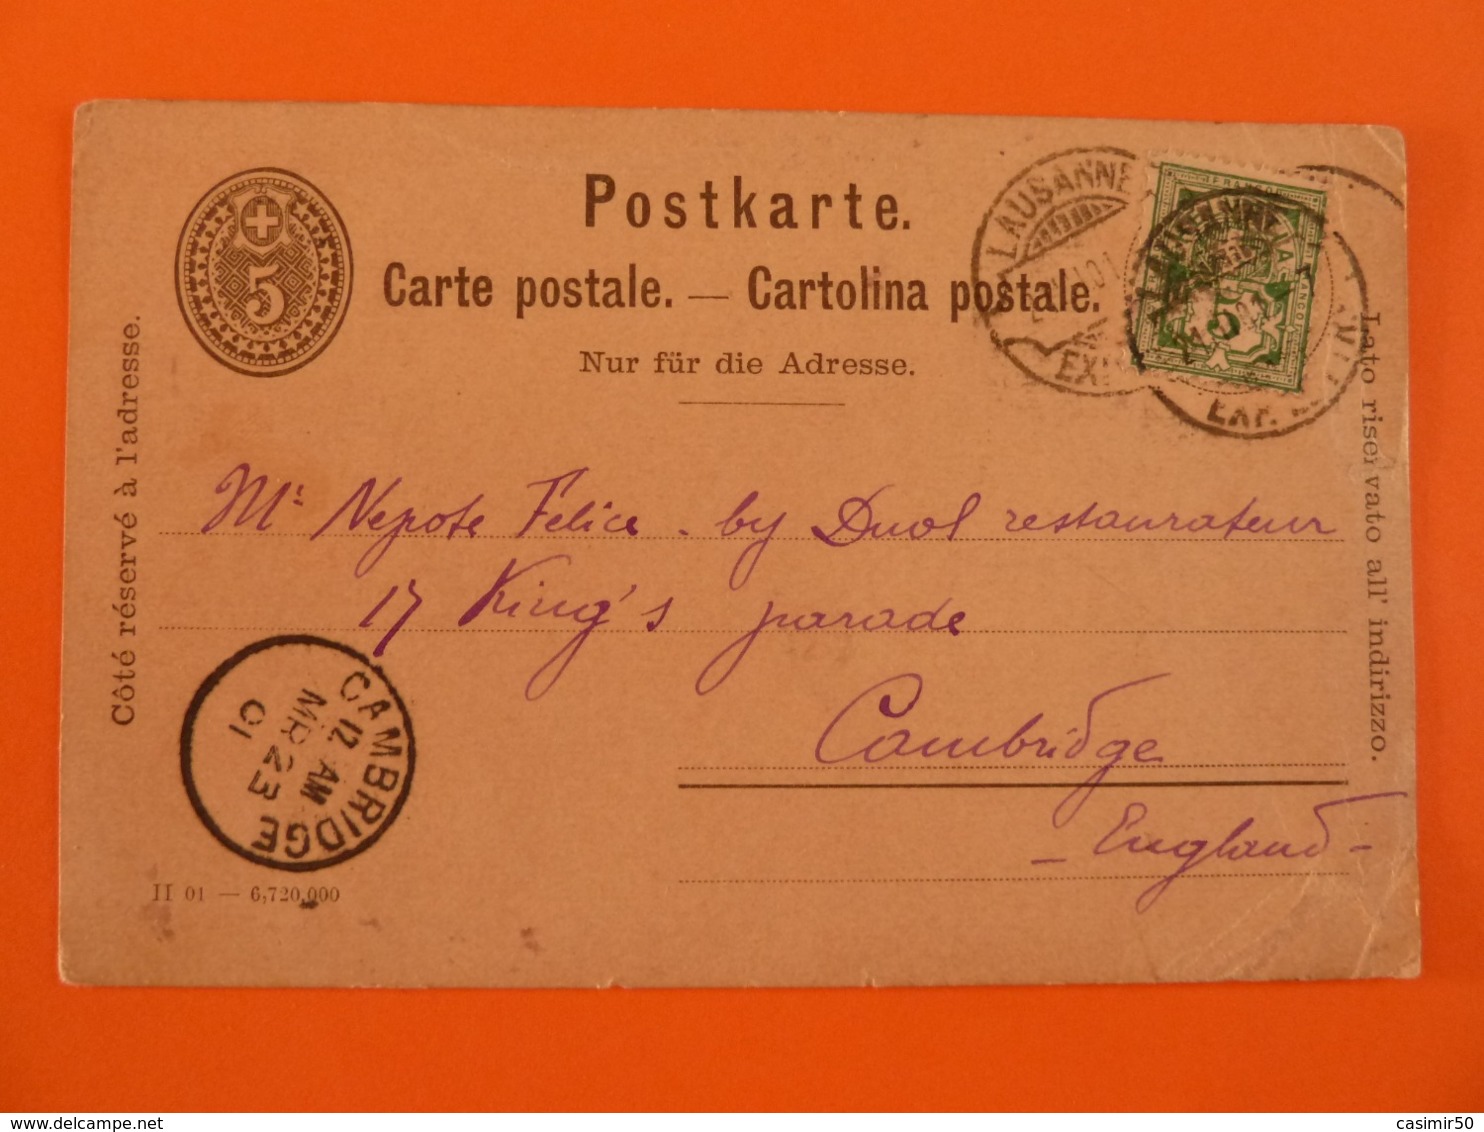 5
Postkarte.
Carte postale. — Cartolina postale.
Nur für die Adresse.
Côté réservé à l'adresse.
Lato riservato all' indirizzo.
LAUSANNE
LAUSANNE
EXP.
FRANCO
5
Mr Nepote Felice. by Duol restaurateur
17 King's parade
Cambridge
- England -
CAMBRIDGE
12 AM
MR 23
01
II 01 — 6,720,000
casimir50